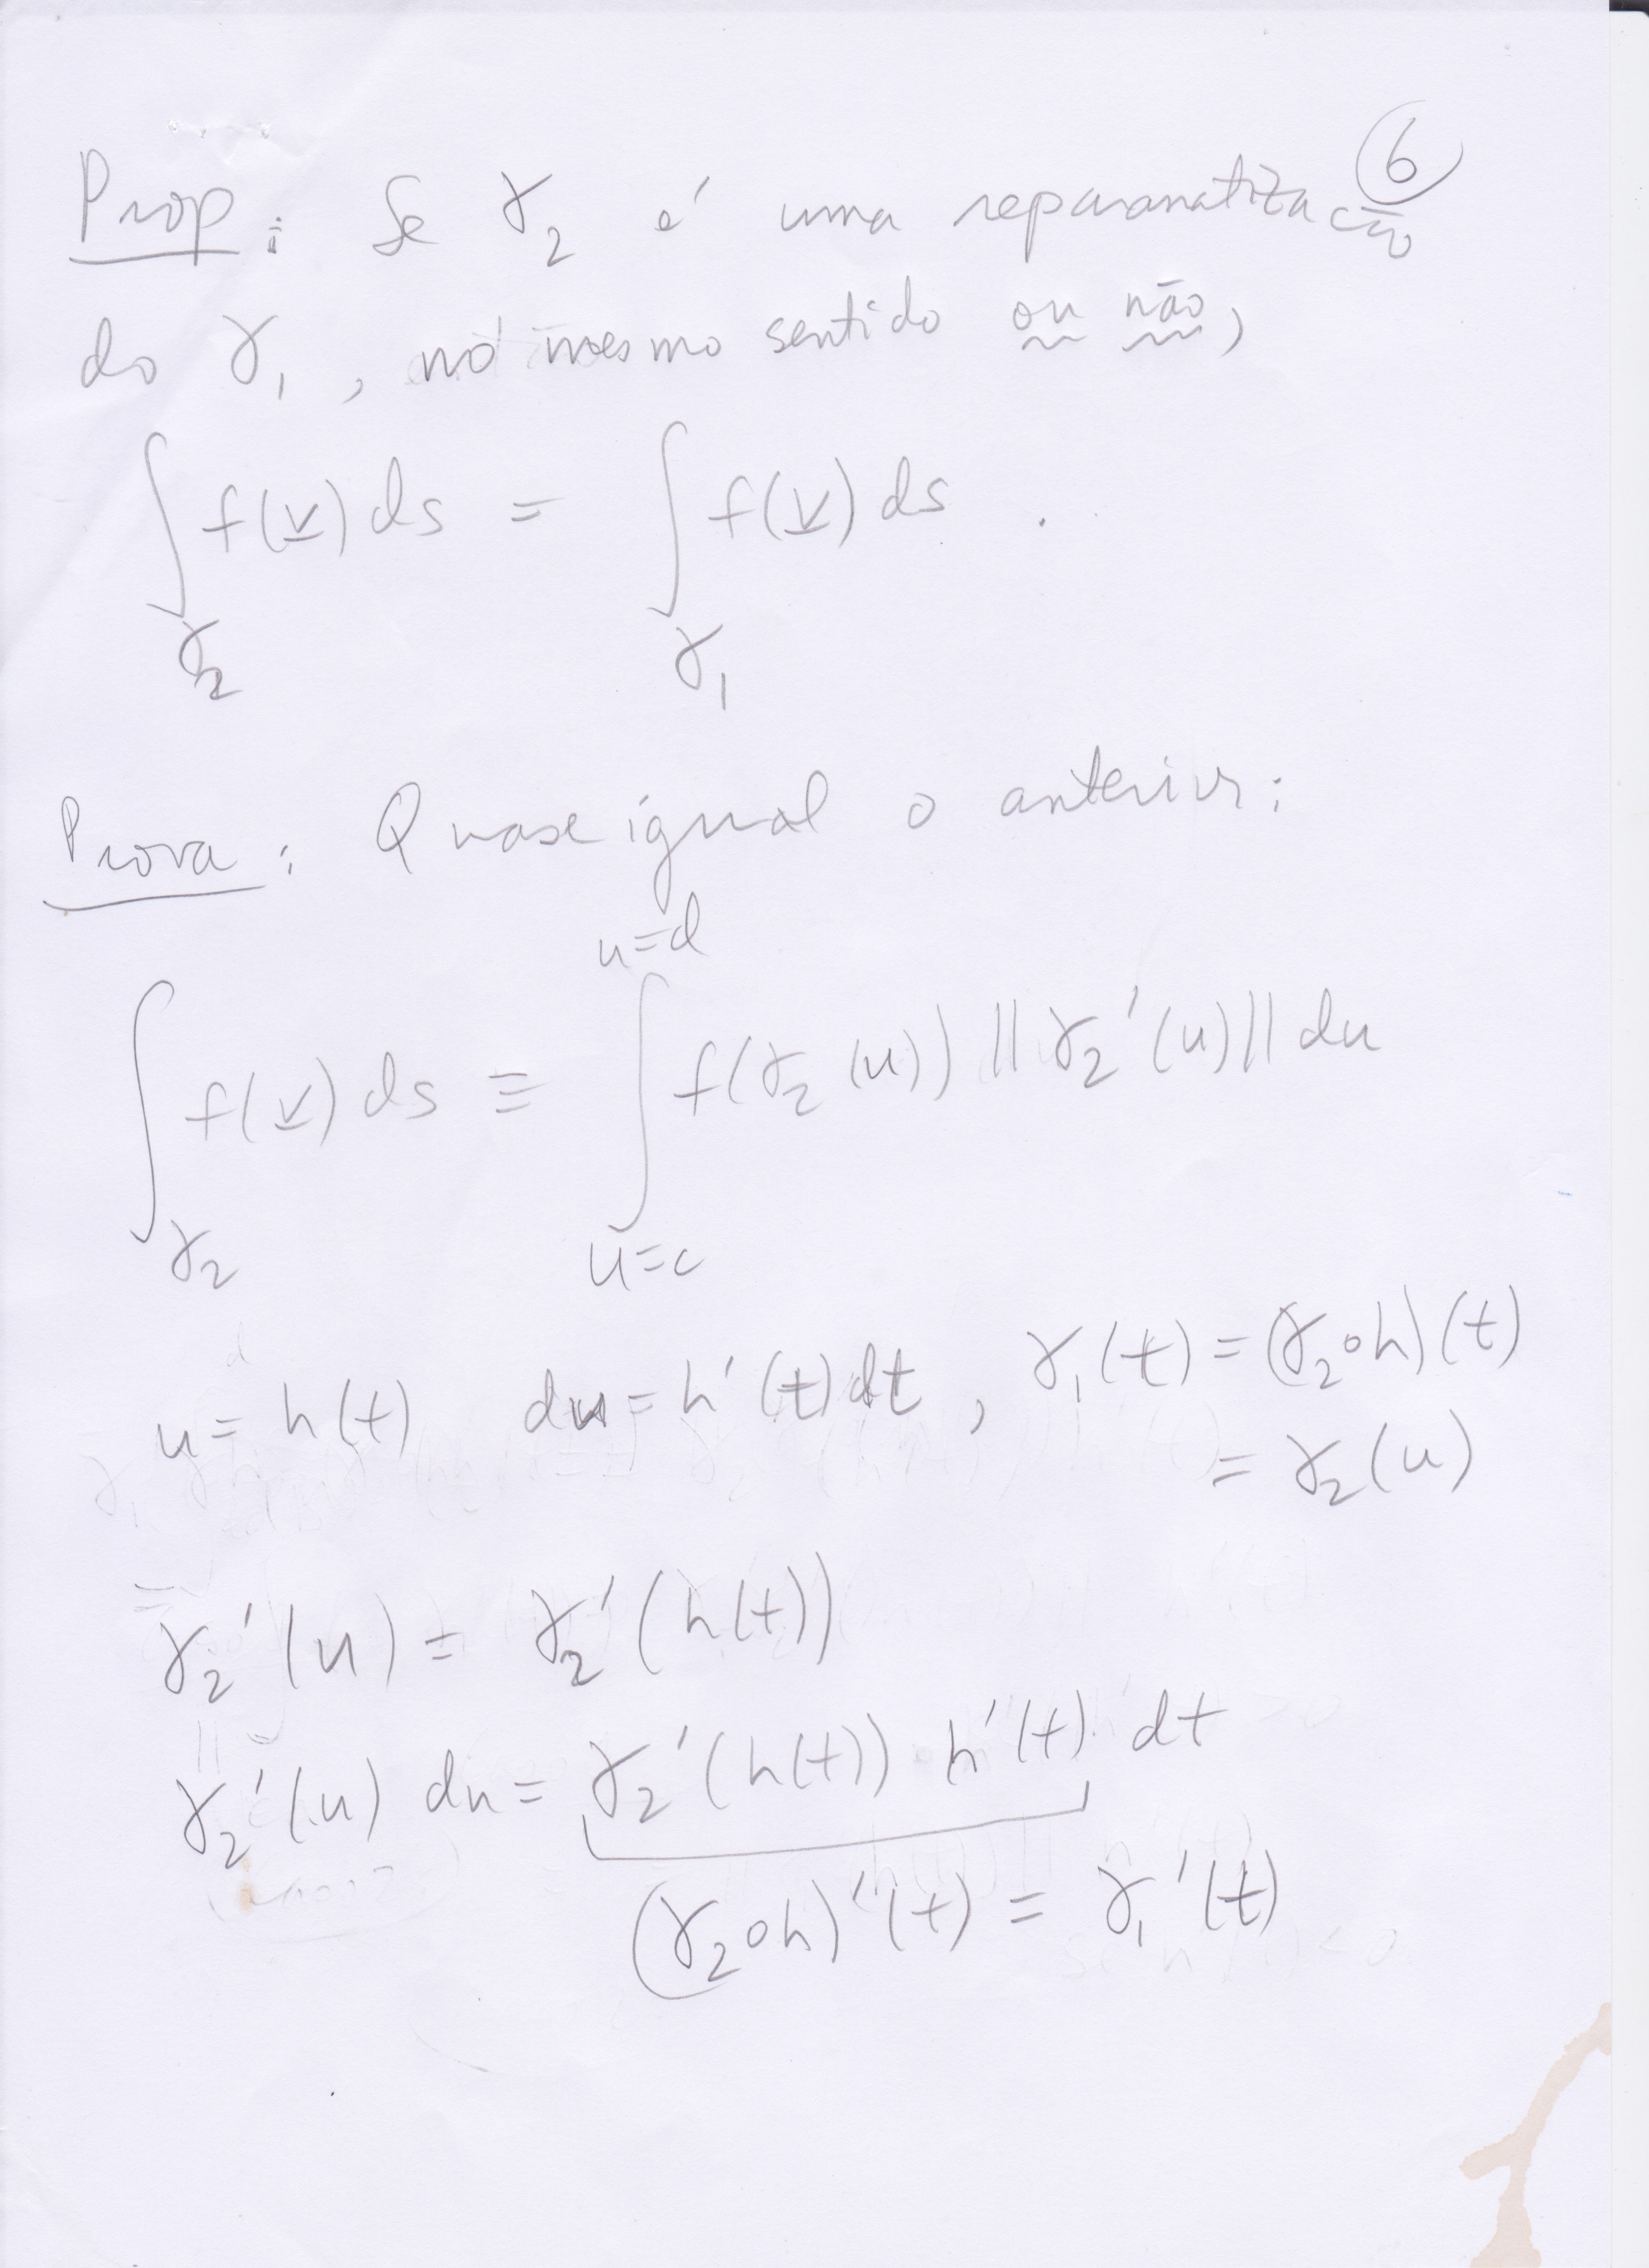 6
Prop: Se γ₂ é uma reparamatização
do γ₁, no mesmo sentido ou não,
∫_γ₂ f(v) ds = ∫_γ₁ f(v) ds .
Prova: Quase igual o anterior:
∫_γ₂ f(v) ds ≡ ∫_{u=c}^{u=d} f(γ₂(u)) ||γ₂'(u)|| du
u = h(t) du = h'(t) dt , γ₁(t) = (γ₂∘h)(t)
= γ₂(u)
γ₂'(u) = γ₂'(h(t))
γ₂'(u) du = γ₂'(h(t)) · h'(t) · dt
(γ₂∘h)'(t) = γ₁'(t)